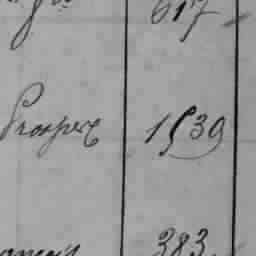 617
Prospere 1539
383